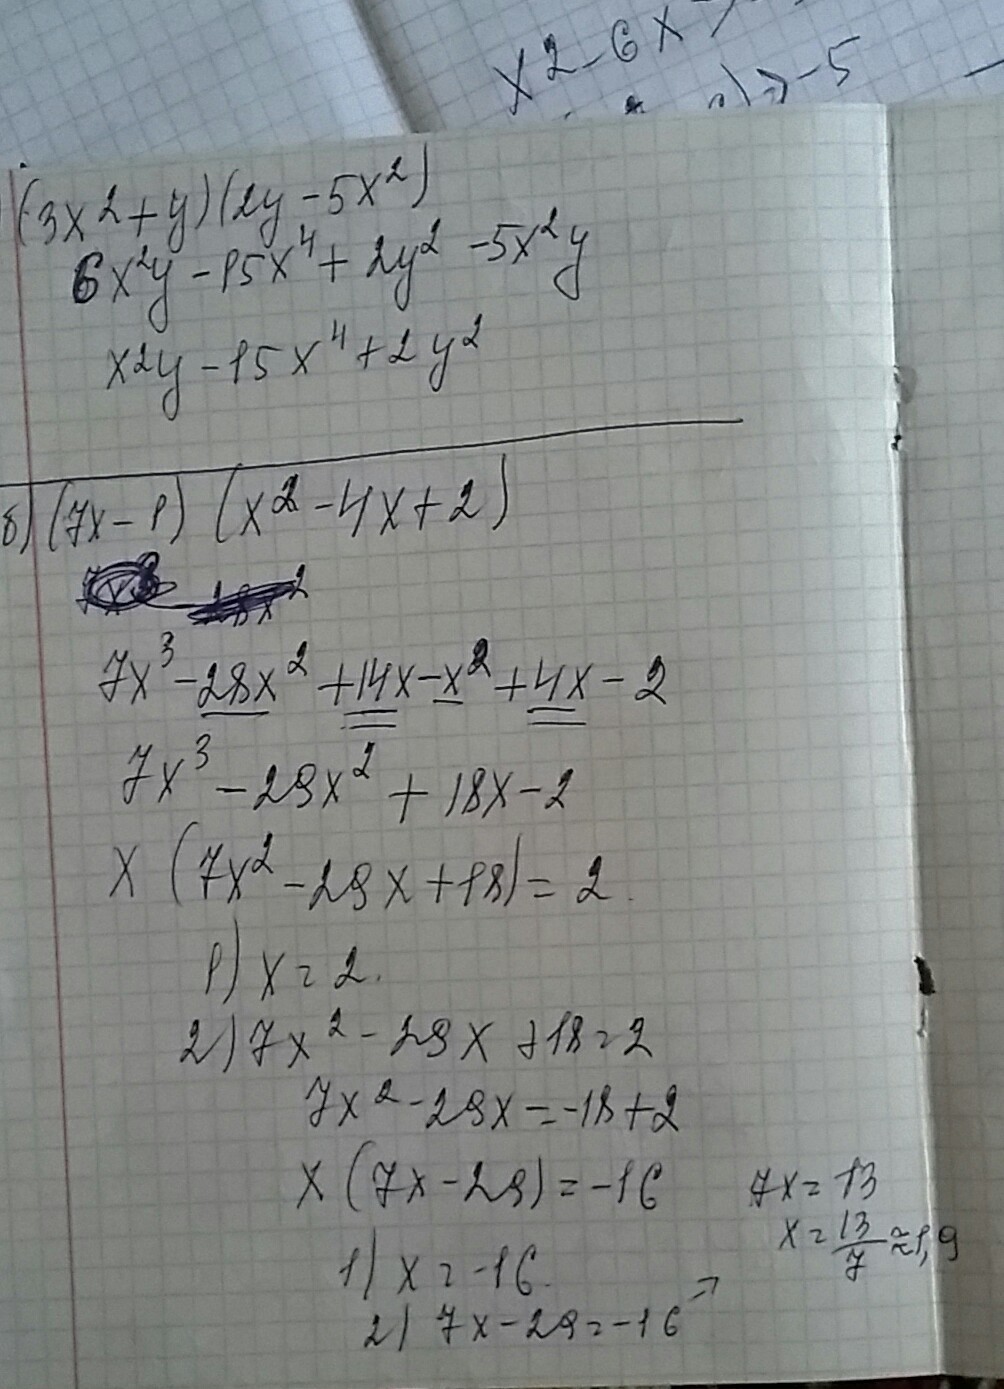 x2-6x
-5
(3x2+y)(2y-5x²)
6x²y-15x⁴+2y²-5x²y
x2y-15x⁴+2y²
б) (7x-1) (x²-4x+2)
7x³-28x²+14x-x²+4x-2
7x³-29x²+18x-2
x (7x²-29x+18)=2.
1) x=2.
2) 7x²-29x+18=2
7x²-29x=-18+2
x (7x-29)=-16
1) x=-16.
2) 7x-29=-16 →
7x=13
x=13/7≈1,9